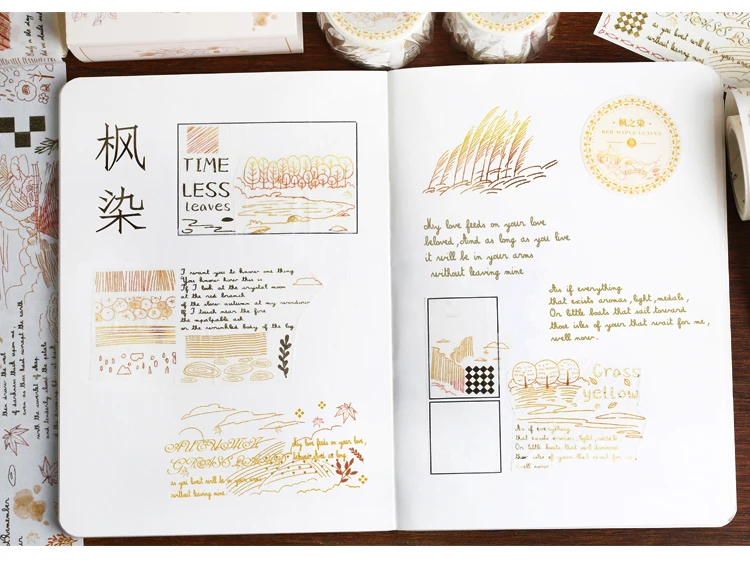 枫
染
TIME
LESS
leaves
I want you to know one thing
You know how this is
If I look at the crystal moon
at the red branch
of the slow autumn at my window
if I touch near the fire
the impalpable ash
or the wrinkled body of the log
AUTUMN
GRASS
My love feeds on your love,
beloved, And as long
as you live it will be in your arms
without leaving mine
·枫之染·
RED MAPLE LEAVES
My love feeds on your love
beloved, And as long as you live
it will be in your arms
without leaving mine
As if everything
that exists aromas, light, medals,
On little boats that sail toward
those isles of your that wait for me,
well now.
Grass
yellow
As if everything
that exists aromas, light, medals
On little boats that sail toward
those isles of your that wait for me
well now
as you live it will be in your arms
without leaving mine